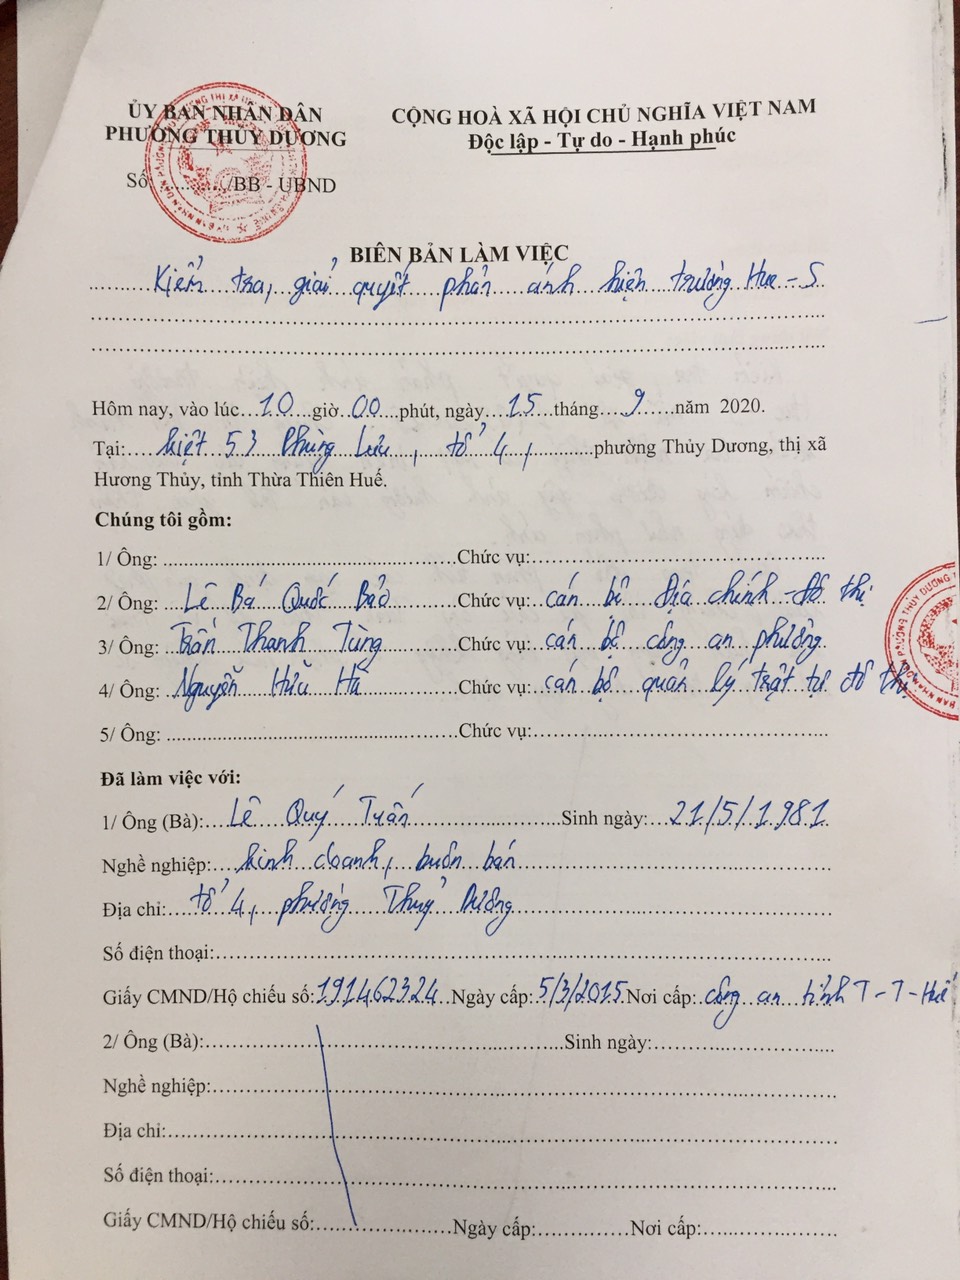 ỦY BAN NHÂN DÂN
PHƯỜNG THỦY DƯƠNG
CỘNG HOÀ XÃ HỘI CHỦ NGHĨA VIỆT NAM
Độc lập - Tự do - Hạnh phúc
Số:............/BB - UBND
BIÊN BẢN LÀM VIỆC
Kiểm tra, giải quyết phản ánh hiện trường Hue-S
Hôm nay, vào lúc 10 giờ 00 phút, ngày 15 tháng 9 năm 2020.
Tại: kiệt 53 Phùng Lưu, tổ 4, phường Thủy Dương, thị xã
Hương Thủy, tỉnh Thừa Thiên Huế.
Chúng tôi gồm:
1/ Ông: ........ Chức vụ: ........
2/ Ông: Lê Bá Quốc Bảo Chức vụ: cán bộ Địa chính - đô thị
3/ Ông: Trần Thanh Tùng Chức vụ: cán bộ công an phường
4/ Ông: Nguyễn Hữu Hà Chức vụ: cán bộ quản lý trật tự đô thị
5/ Ông: ........ Chức vụ: ........
Đã làm việc với:
1/ Ông (Bà): Lê Quý Tuấn Sinh ngày: 21/5/1981
Nghề nghiệp: kinh doanh, buôn bán
Địa chỉ: tổ 4, phường Thuỷ Dương
Số điện thoại: ........
Giấy CMND/Hộ chiếu số: 191462324 Ngày cấp: 5/3/2015 Nơi cấp: công an tỉnh T-T-Huế
2/ Ông (Bà): ........ Sinh ngày: ........
Nghề nghiệp: ........
Địa chỉ: ........
Số điện thoại: ........
Giấy CMND/Hộ chiếu số: ........ Ngày cấp: ........ Nơi cấp: ........